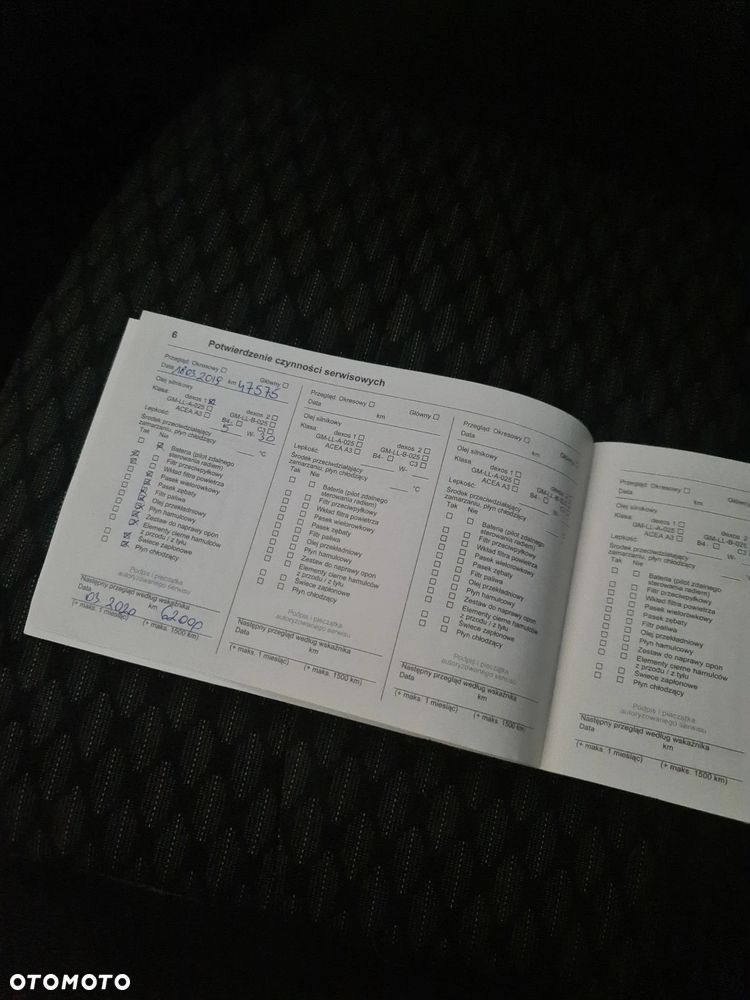 6
Potwierdzenie czynności serwisowych
Przegląd: Okresowy □ Główny □
Data 18 03 2019 km 47575
Olej silnikowy
Klasa dexos 1 dexos 2 □
GM-LL-A-025 □ GM-LL-B-025 □
ACEA A3 □ B4- □ C3 □
Lepkość: 5 W- 30
Środek przeciwdziałający
zamarzaniu, płyn chłodzący: °C
Tak Nie
Bateria (pilot zdalnego
sterowania radiem)
Filtr przeciwpyłkowy
Wkład filtra powietrza
Pasek wielorowkowy
Pasek zębaty
Filtr paliwa
Olej przekładniowy
Płyn hamulcowy
Zestaw do naprawy opon
Elementy cierne hamulców
z przodu / z tyłu
Świece zapłonowe
Płyn chłodzący
Podpis i pieczątka
autoryzowanego serwisu
Następny przegląd według wskaźnika
Data 03 2020 km 62000
(+ maks. 1 miesiąc) (+ maks. 1500 km)
Przegląd: Okresowy □ Główny □
Data km
Olej silnikowy
Klasa dexos 1 □ dexos 2 □
GM-LL-A-025 □ GM-LL-B-025 □
ACEA A3 □ B4- □ C3 □
Lepkość: W-
Środek przeciwdziałający
zamarzaniu, płyn chłodzący: °C
Tak Nie
Bateria (pilot zdalnego
sterowania radiem)
Filtr przeciwpyłkowy
Wkład filtra powietrza
Pasek wielorowkowy
Pasek zębaty
Filtr paliwa
Olej przekładniowy
Płyn hamulcowy
Zestaw do naprawy opon
Elementy cierne hamulców
z przodu / z tyłu
Świece zapłonowe
Płyn chłodzący
Podpis i pieczątka
autoryzowanego serwisu
Następny przegląd według wskaźnika
Data km
(+ maks. 1 miesiąc) (+ maks. 1500 km)
Przegląd: Okresowy □ Główny
Data km
Olej silnikowy
Klasa dexos 1 □ dexos 2
GM-LL-A-025 □ GM-LL-B-025
ACEA A3 □ B4- □ C3
Lepkość: W-
Środek przeciwdziałający
zamarzaniu, płyn chłodzący:
Tak Nie
Bateria (pilot zdalnego
sterowania radiem)
Filtr przeciwpyłkowy
Wkład filtra powietrza
Pasek wielorowkowy
Pasek zębaty
Filtr paliwa
Olej przekładniowy
Płyn hamulcowy
Zestaw do naprawy opon
Elementy cierne hamulców
z przodu / z tyłu
Świece zapłonowe
Płyn chłodzący
Podpis i pieczątka
autoryzowanego serwisu
Następny przegląd według wskaźnika
Data km
(+ maks. 1 miesiąc) (+ maks. 1500 km)
Przegląd: Okresowy □
Data km
Olej silnikowy
Klasa dexos 1 □ dexos 2
GM-LL-A-025 □ GM-LL-B-025
ACEA A3 □ B4- □ C3
Lepkość: W-
Środek przeciwdziałający
zamarzaniu, płyn chłodzący:
Tak Nie
Bateria (pilot zdalnego
sterowania radiem)
Filtr przeciwpyłkowy
Wkład filtra powietrza
Pasek wielorowkowy
Pasek zębaty
Filtr paliwa
Olej przekładniowy
Płyn hamulcowy
Zestaw do naprawy opon
Elementy cierne hamulców
z przodu / z tyłu
Świece zapłonowe
Płyn chłodzący
Podpis i pieczątka
autoryzowanego serwisu
Następny przegląd według wskaźnika
Data km
(+ maks. 1 miesiąc) (+ maks. 1500 km)
OTOMOTO